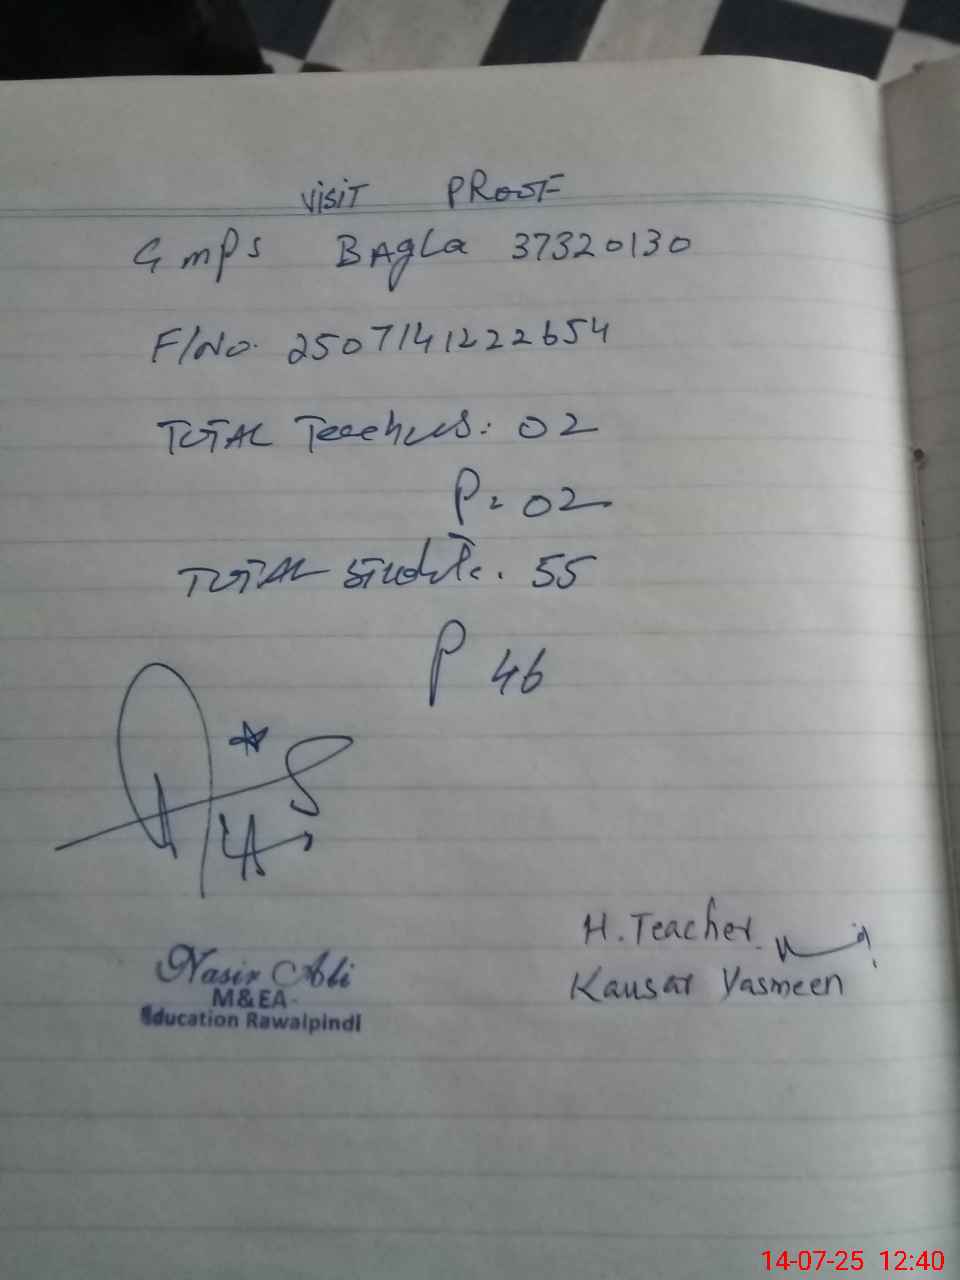 VISIT PROOF
GMPS BAGLA 37320130
F/No. 2507141222654
TOTAL Teachers: 02
P= 02
TOTAL Students. 55
P 46
H. Teacher
Kausar Yasmeen
Nasir Ali
M&EA
Education Rawalpindi
14-07-25 12:40